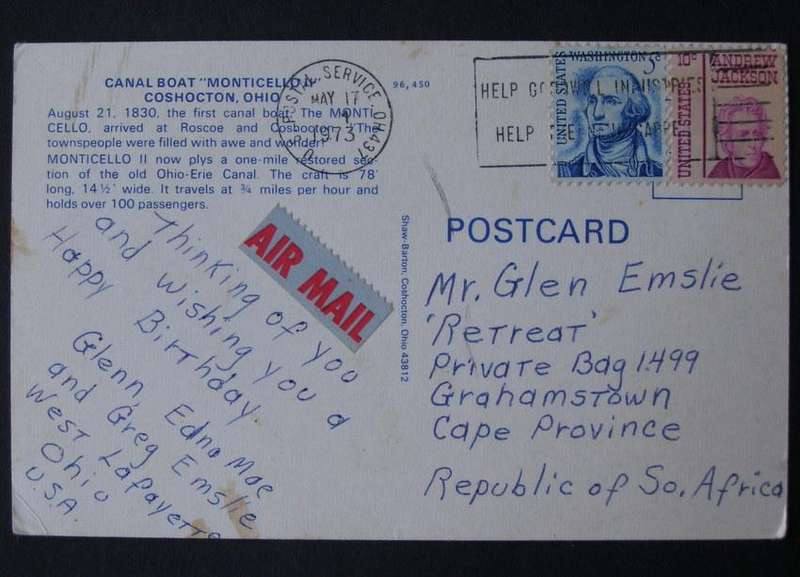 CANAL BOAT "MONTICELLO II"
COSHOCTON, OHIO
96,450
August 21, 1830, the first canal boat, The MONTI-
CELLO, arrived at Roscoe and Coshocton. "The
townspeople were filled with awe and wonder!"
MONTICELLO II now plys a one-mile restored sec-
tion of the old Ohio-Erie Canal. The craft is 78'
long, 14½' wide. It travels at ¾ miles per hour and
holds over 100 passengers.
U.S. POSTAL SERVICE OH 437
MAY 17
1973
HELP GOODWILL INDUSTRIES
HELP
UNITED STATES
WASHINGTON 5c
10c
UNITED STATES
ANDREW
JACKSON
AIR MAIL
Shaw-Barton, Coshocton, Ohio 43812
POSTCARD
Thinking of you
and wishing you a
Happy Birthday
Glenn, Edna Mae
and Greg Emslie
West Lafayette
Ohio
U.S.A
Mr. Glen Emslie
'Retreat'
Private Bag 1499
Grahamstown
Cape Province
Republic of So. Africa